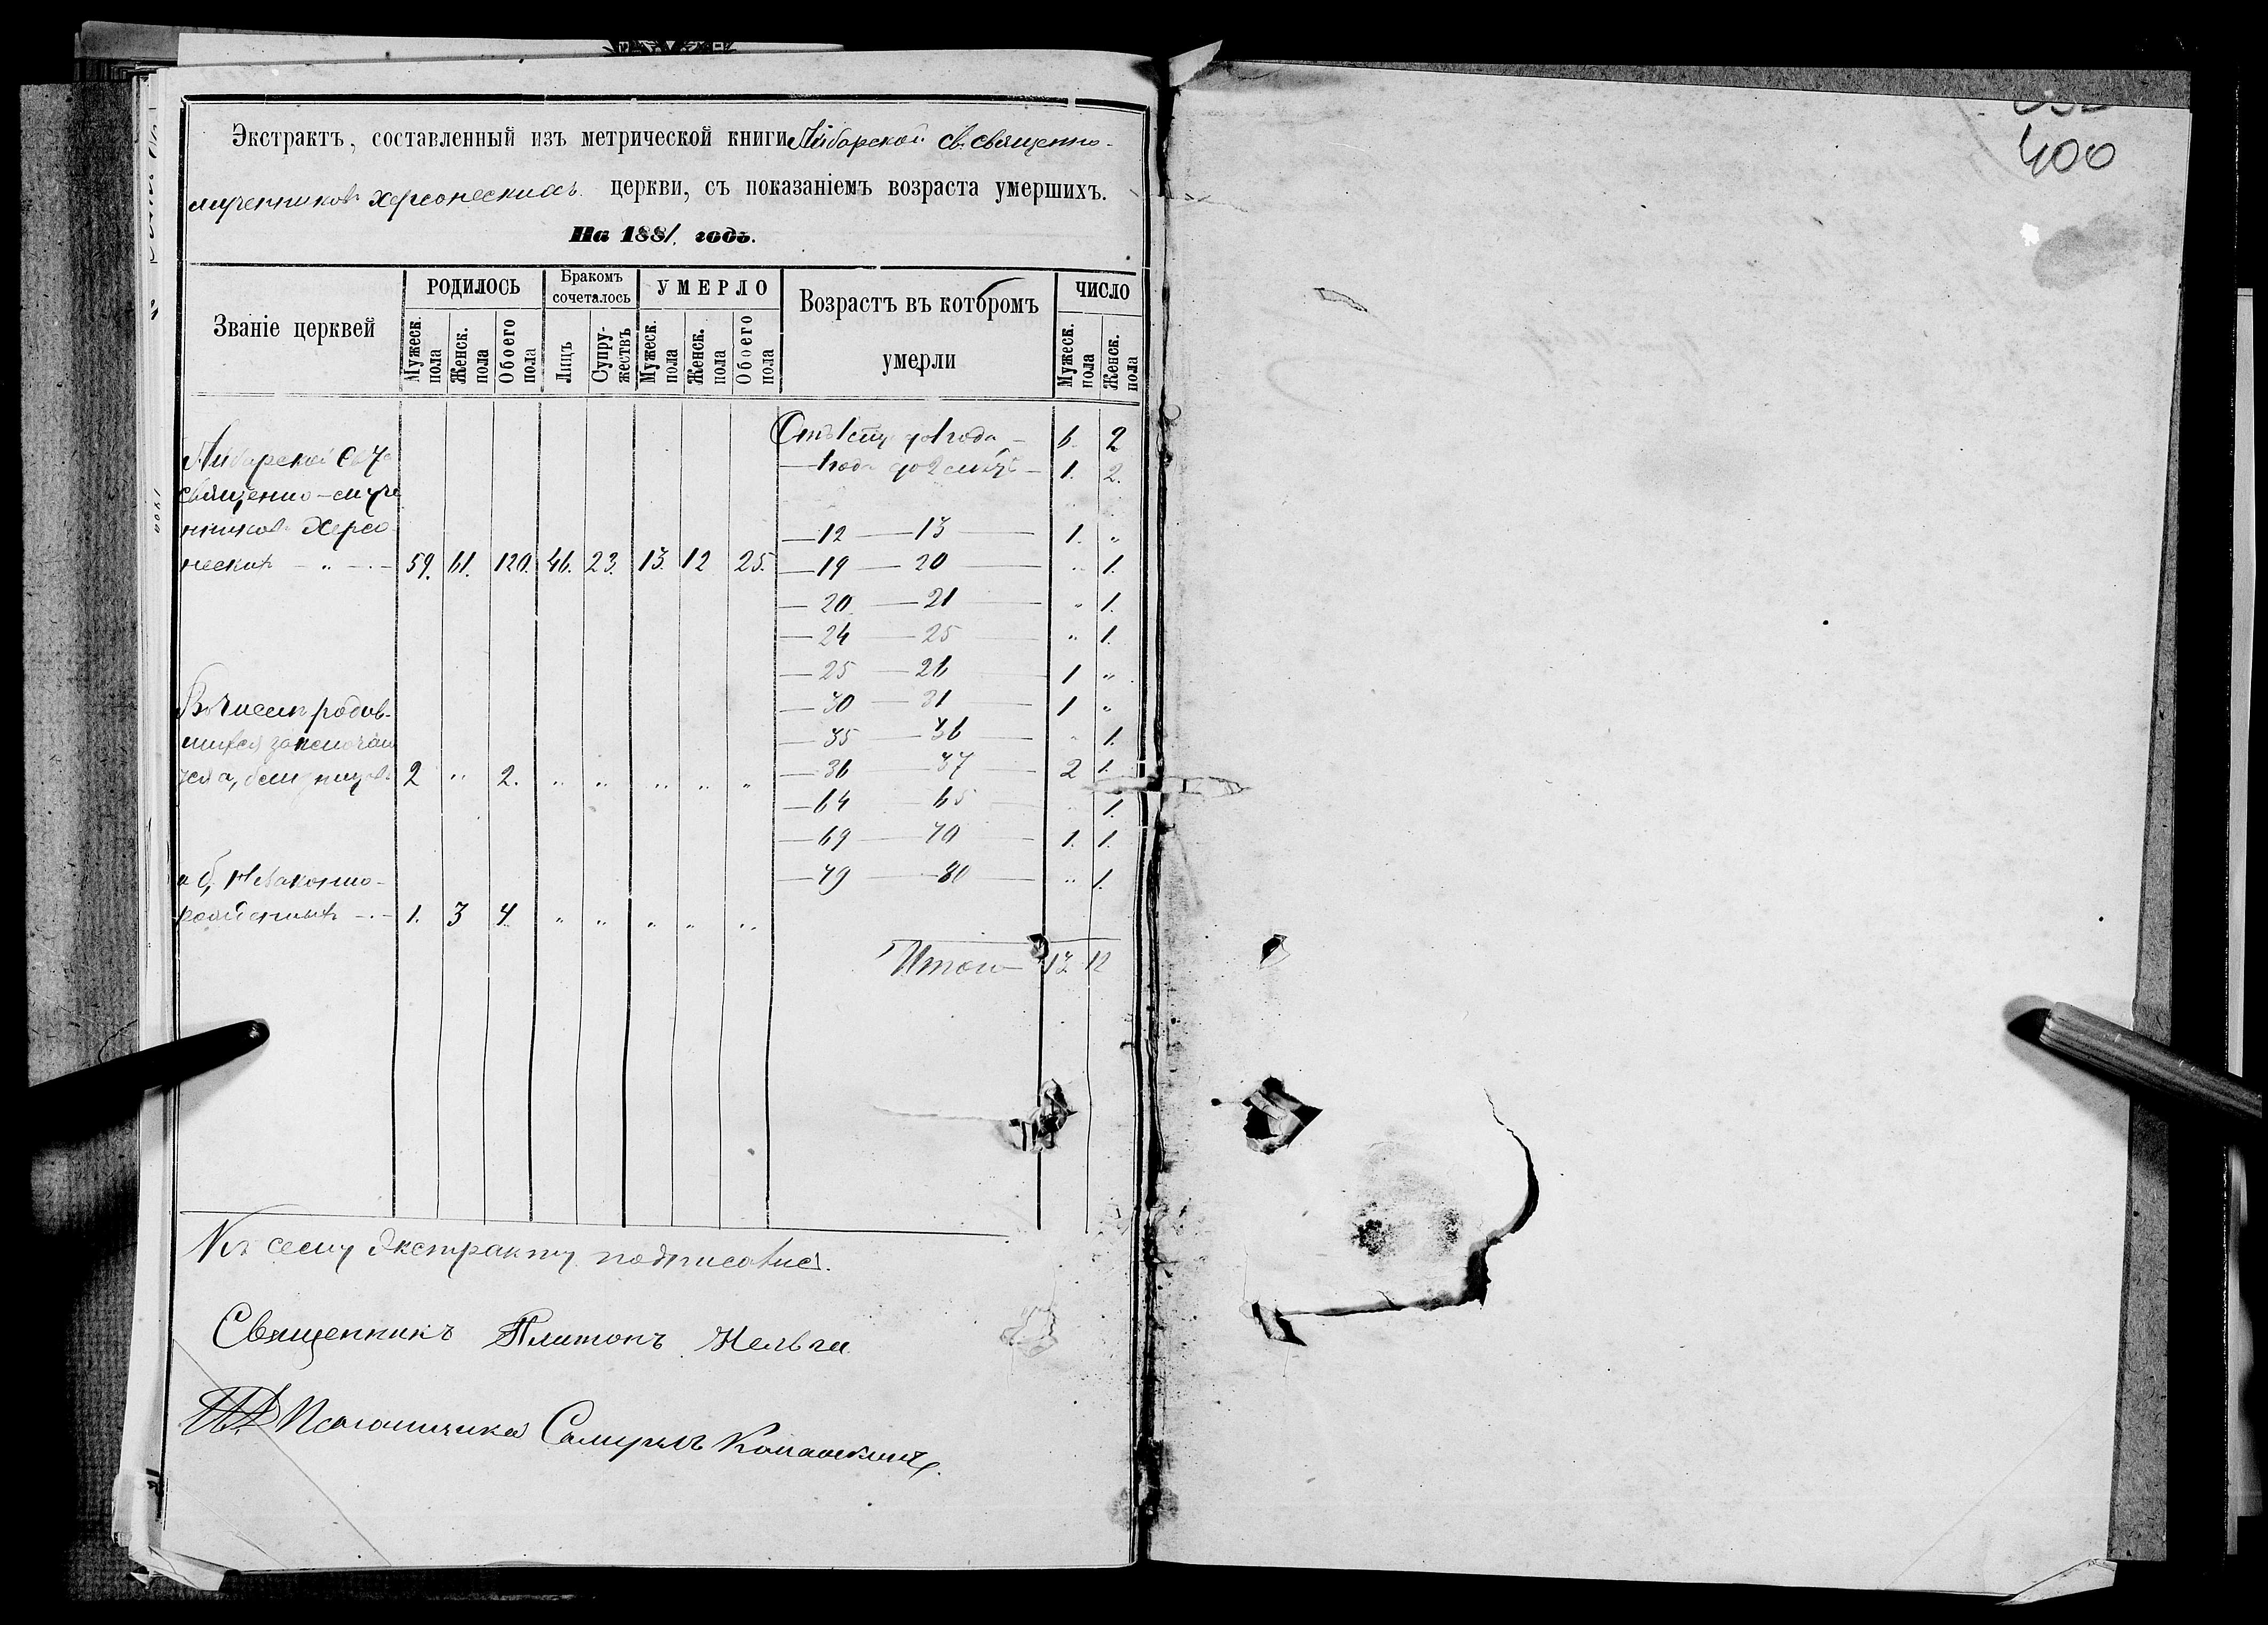 Экстрактъ, составленный изъ метрической книги Айбарской св. священно-
мучениковъ Херсонескихъ церкви, съ показаніемъ возраста умершихъ.
На 1881. годъ.
Званіе церквей
РОДИЛОСЬ
Бракомъ сочеталось
УМЕРЛО
Возрастъ въ которомъ умерли
ЧИСЛО
Мужеск. пола
Женск. пола
Обоего пола
Лицъ
Супру-жествъ
Мужеск. пола
Женск. пола
Обоего пола
Мужеск. пола
Женск. пола
Айбарской
священно-муче
никовъ Херсо
нескихъ - „ - 59. 61. 120. 46. 23. 13. 12 25.
Въ числѣ родив-
шихся
2 „ 2. „ „ „ „ „
и б, Незаконно-
рожденныхъ - 1. 3 4. „ „ „ „ „
до 1 года - 6. 2
- 1 года до 2 - 1. 2.
- 12 - 13 - 1. „
- 19 - 20 - „ 1.
- 20 - 21 - „ 1.
- 24 - 25 - „ 1.
- 25 - 26 - 1 „
- 30 - 31 - 1 „
- 35 - 36 - „ 1.
- 36 - 37 - 2 1.
- 64 - 65 - „ 1.
- 69 - 70 - 1. 1.
- 79 - 80 - „ 1.
Итого - 13 12
Къ сему Экстракту подписались.
Священникъ Платонъ
Псаломщика Самуилъ
400